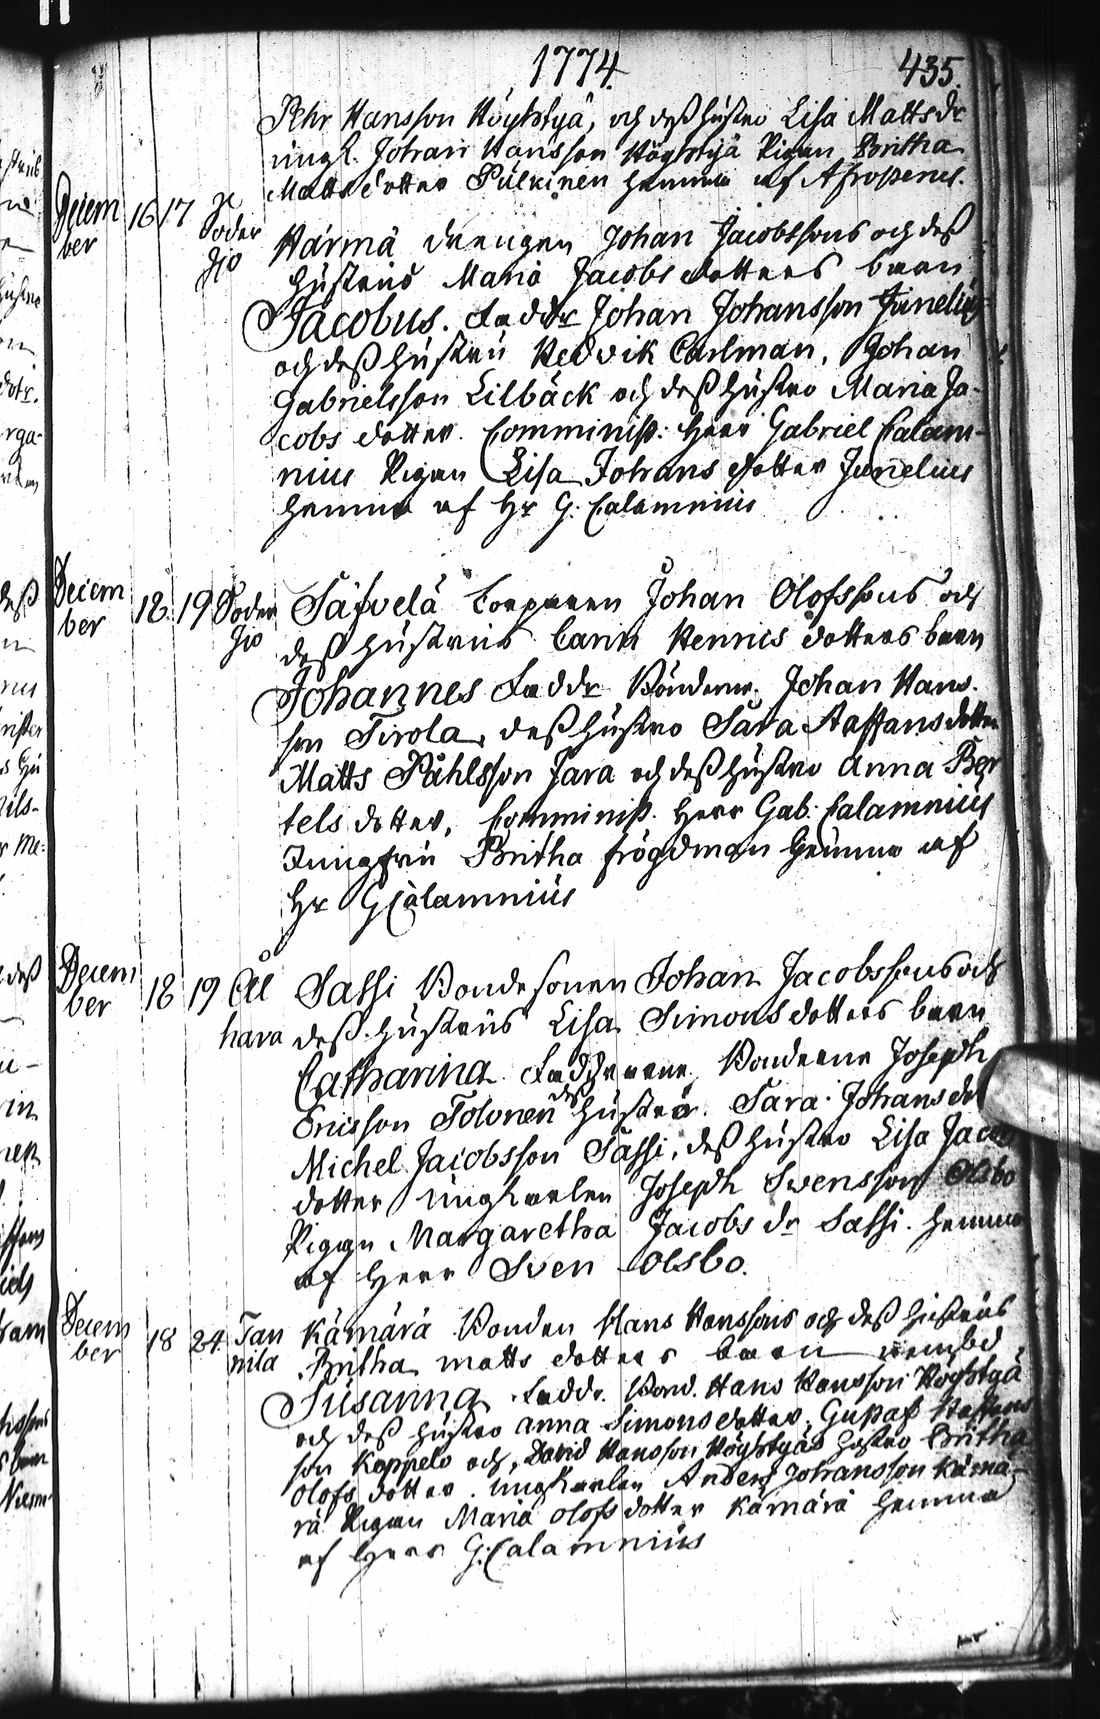 1774. 435.
Pehr Hansson Höyhtyä, och deß hustro Lisa Matts dr
ungk. Johan Hansson Höyhtyä Pigan Britha
Matts dotter Pulkinen hemma af Afroßenes.
Decem
ber 16 17 Yc
Soder
hjo
Härmä drengen Johan Jacobssons och deß
hustrus Maria Jacobs dotters barn
Jacobus. Faddr Johan Johansson Junelius
och deß hustru Hedvik Carlman, Johan
Gabrielsson Lilbäck och deß hustro Maria Ja-
cobs dotter. Comminiss: Herr Gabriel Calam-
nius Pigan Lisa Johans dotter Junelius
hemma af Hr G. Calamnius
Decem
ber 18 19 Soder
hjo
Säfvelä torparen Johan Olofssons och
deß hustrus Carin Hennics dotters barn
Johannes Faddr Bönderne Johan Hans-
son Tirola, deß hustro Sara Staffans dotter
Matts Påhlsson Jara och deß hustro Anna Ber
tels dotter, Comminiss. Herr Gab. Calamnius
Jungfru Britha Frögdman hemma af
Hr G Calamnius
Decem
ber 18 19 Ål
hara
Sassi Bondesonen Johan Jacobssons och
deß hustrus Lisa Simons dotters barn
Catharina Faddrarne Bönderne Joseph
Ericsson Tolonen deß hustro. Sara Johans dot
Michel Jacobsson Sassi, deß hustro Lisa Jacobs
dotter ungkarlen Joseph Svensson Olsbo
Pigan Margaretha Jacobs dr Sassi. hemma
af Herr Sven Olsbo.
Decem
ber 18 24 Tan
nila
Kämärä Bonden Hans Hanssons och deß hustrus
Britha matts dotters barn nembd
Susanna Faddr. Bond. Hans Hansson Höyhtyä
och deß hustro Anna Simons dotter. Gustaf Staffans
son Koppelo och, David Hansson Höyhtyäs hustro Britha
Olofs dotter. ungkarlen Anders Johansson Kämä-
rä Pigan Maria Olofs dotter Kämärä hemma
af Herr G: Calamnius